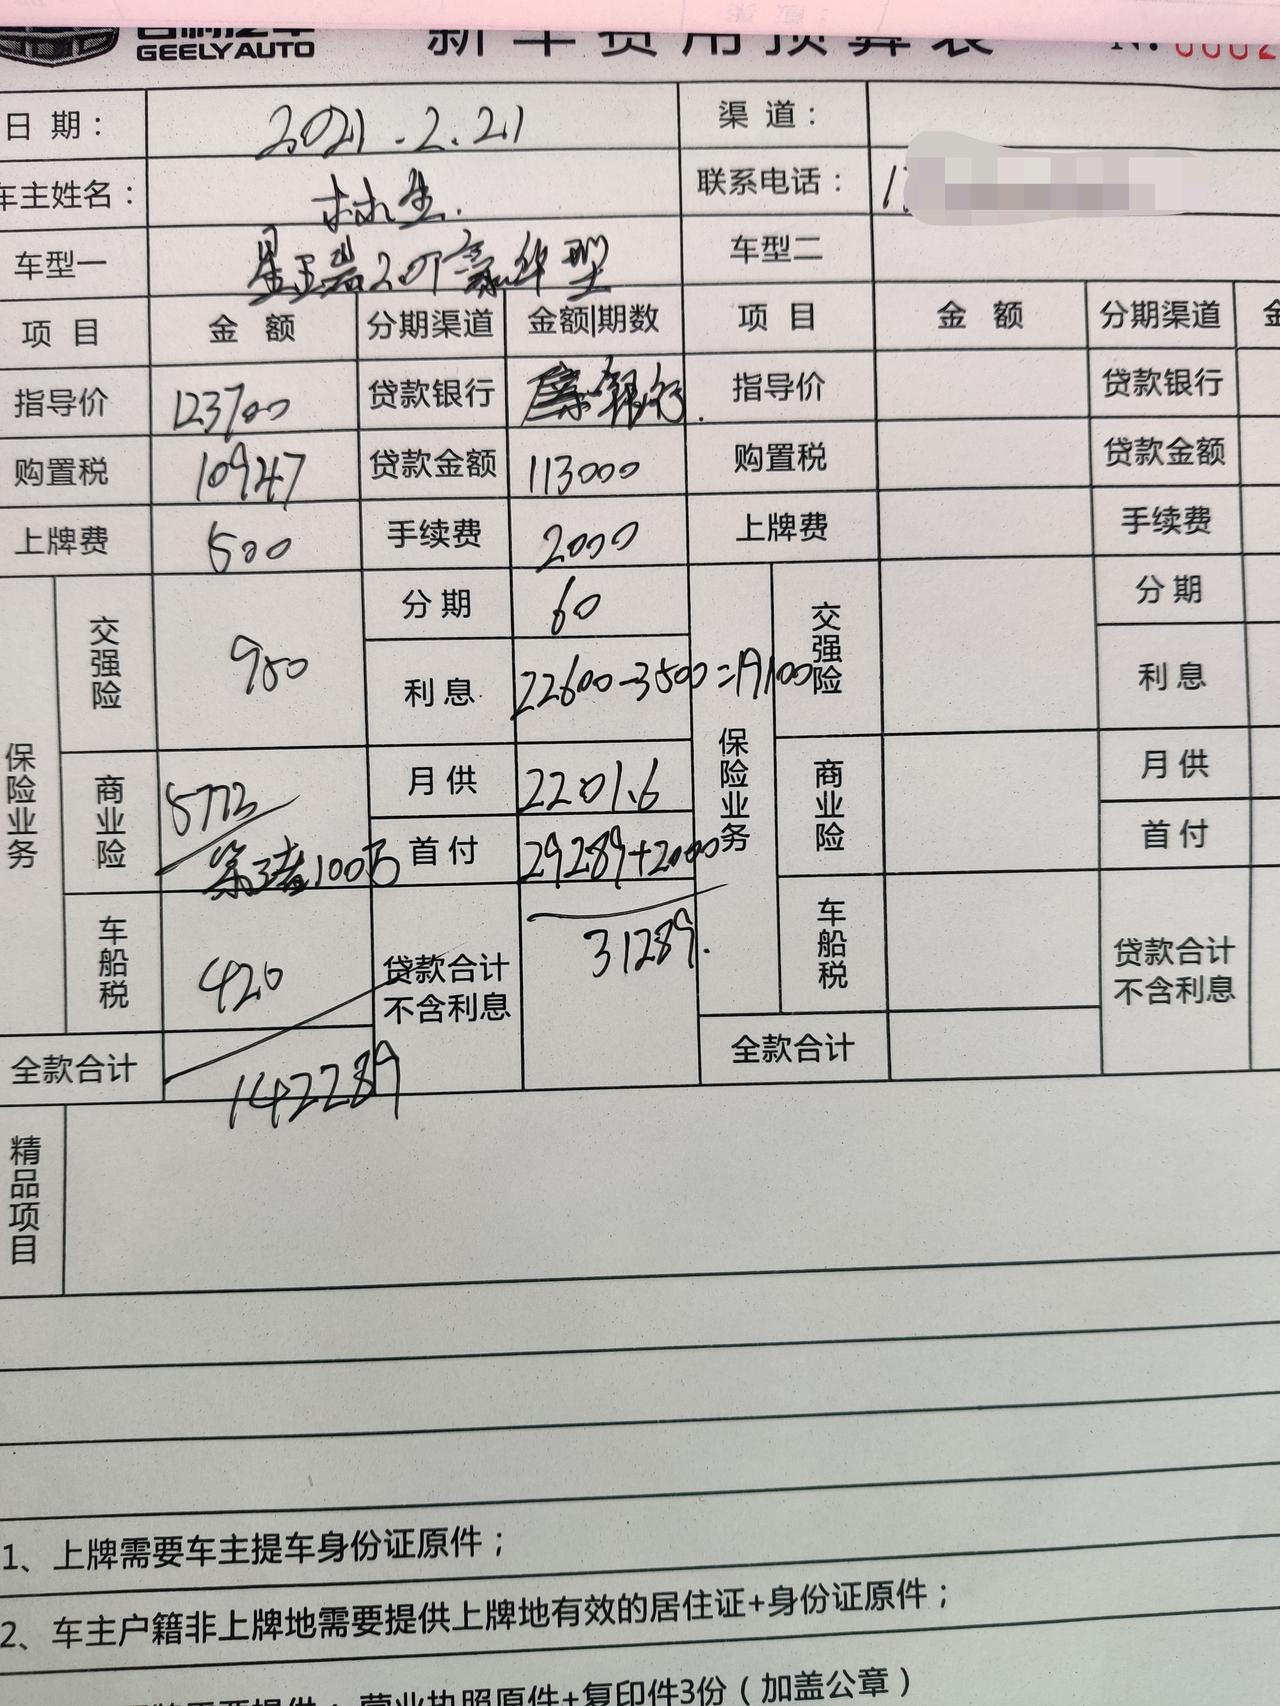 GEELY AUTO 新车费用预算表
日 期： 2021.2.21 渠 道：
车主姓名： 林生. 联系电话： 1
车型一 星瑞2.0T豪华型 车型二
项 目 金 额 分期渠道 金额|期数 项 目 金 额 分期渠道
指导价 123700 贷款银行 银行. 指导价 贷款银行
购置税 10947 贷款金额 113000 购置税 贷款金额
上牌费 500 手续费 2000 上牌费 手续费
保险业务 交强险 950 分 期 60 保险业务 交强险 分 期
利 息 22600-3500=19100 利 息
商业险 5773 第三者100万 月 供 2201.6 商业险 月 供
首 付 29289+2000 首 付
车船税 420 贷款合计不含利息 31289. 车船税 贷款合计不含利息
全款合计 142289 全款合计
精品项目
1、上牌需要车主提车身份证原件；
2、车主户籍非上牌地需要提供上牌地有效的居住证+身份证原件；
营业执照原件+复印件3份（加盖公章）